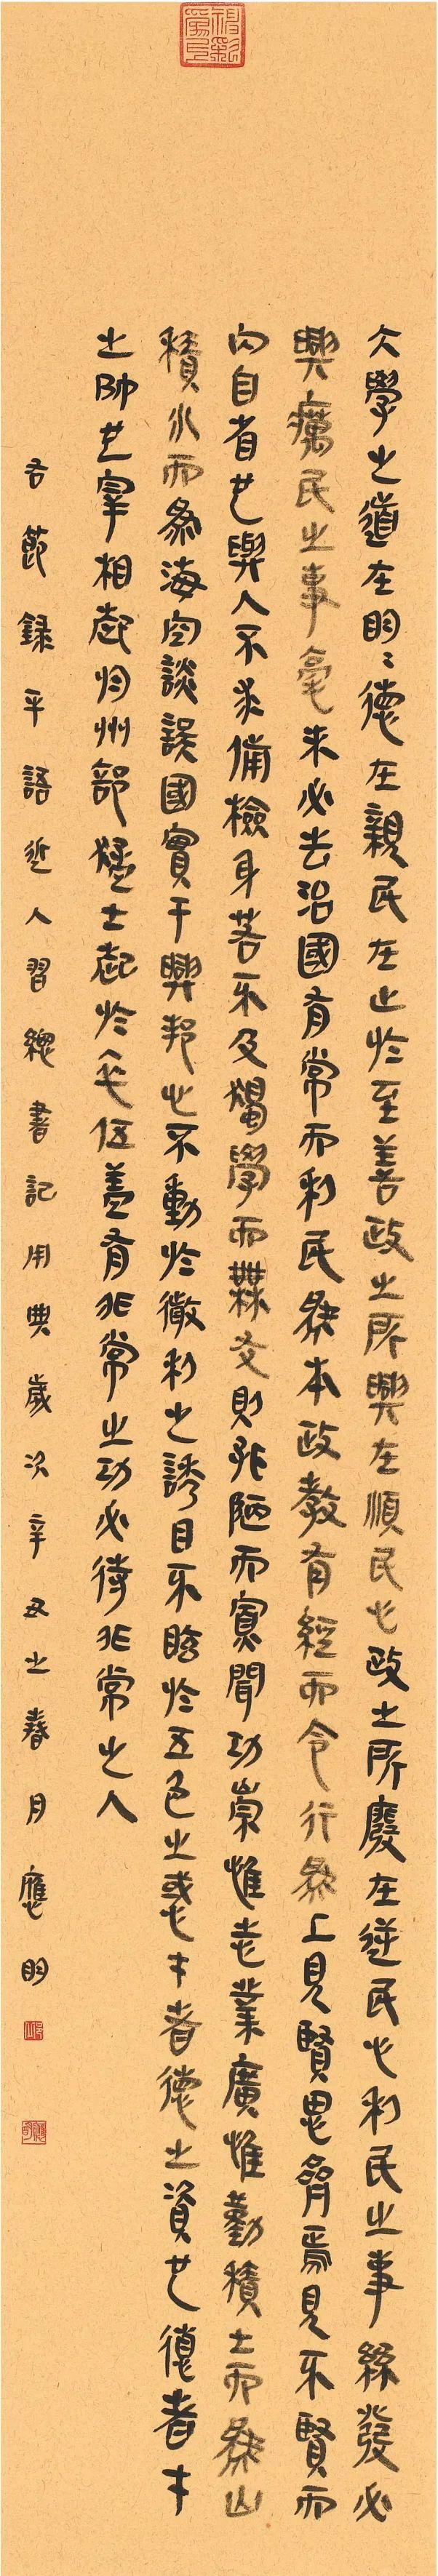 大學之道在明=德在親民在止於至善政之所興在順民心政之所廢在逆民心利民之事絲發必
興厲民之事毫末必去治國有常而利民為本政教有經而令行為上見賢思齊焉見不賢而
內自省也與人不求備檢身若不及獨學而無友則孤陋而寡聞功崇惟志業廣惟勤積土而為山
積水而為海空談誤國實干興邦心不動於微利之誘目不眩於五色之惑才者德之資也德者才
之帥也宰相起於州部猛士起於卒伍蓋有非常之功必待非常之人
右節錄平語近人習總書記用典歲次辛丑之春月應明